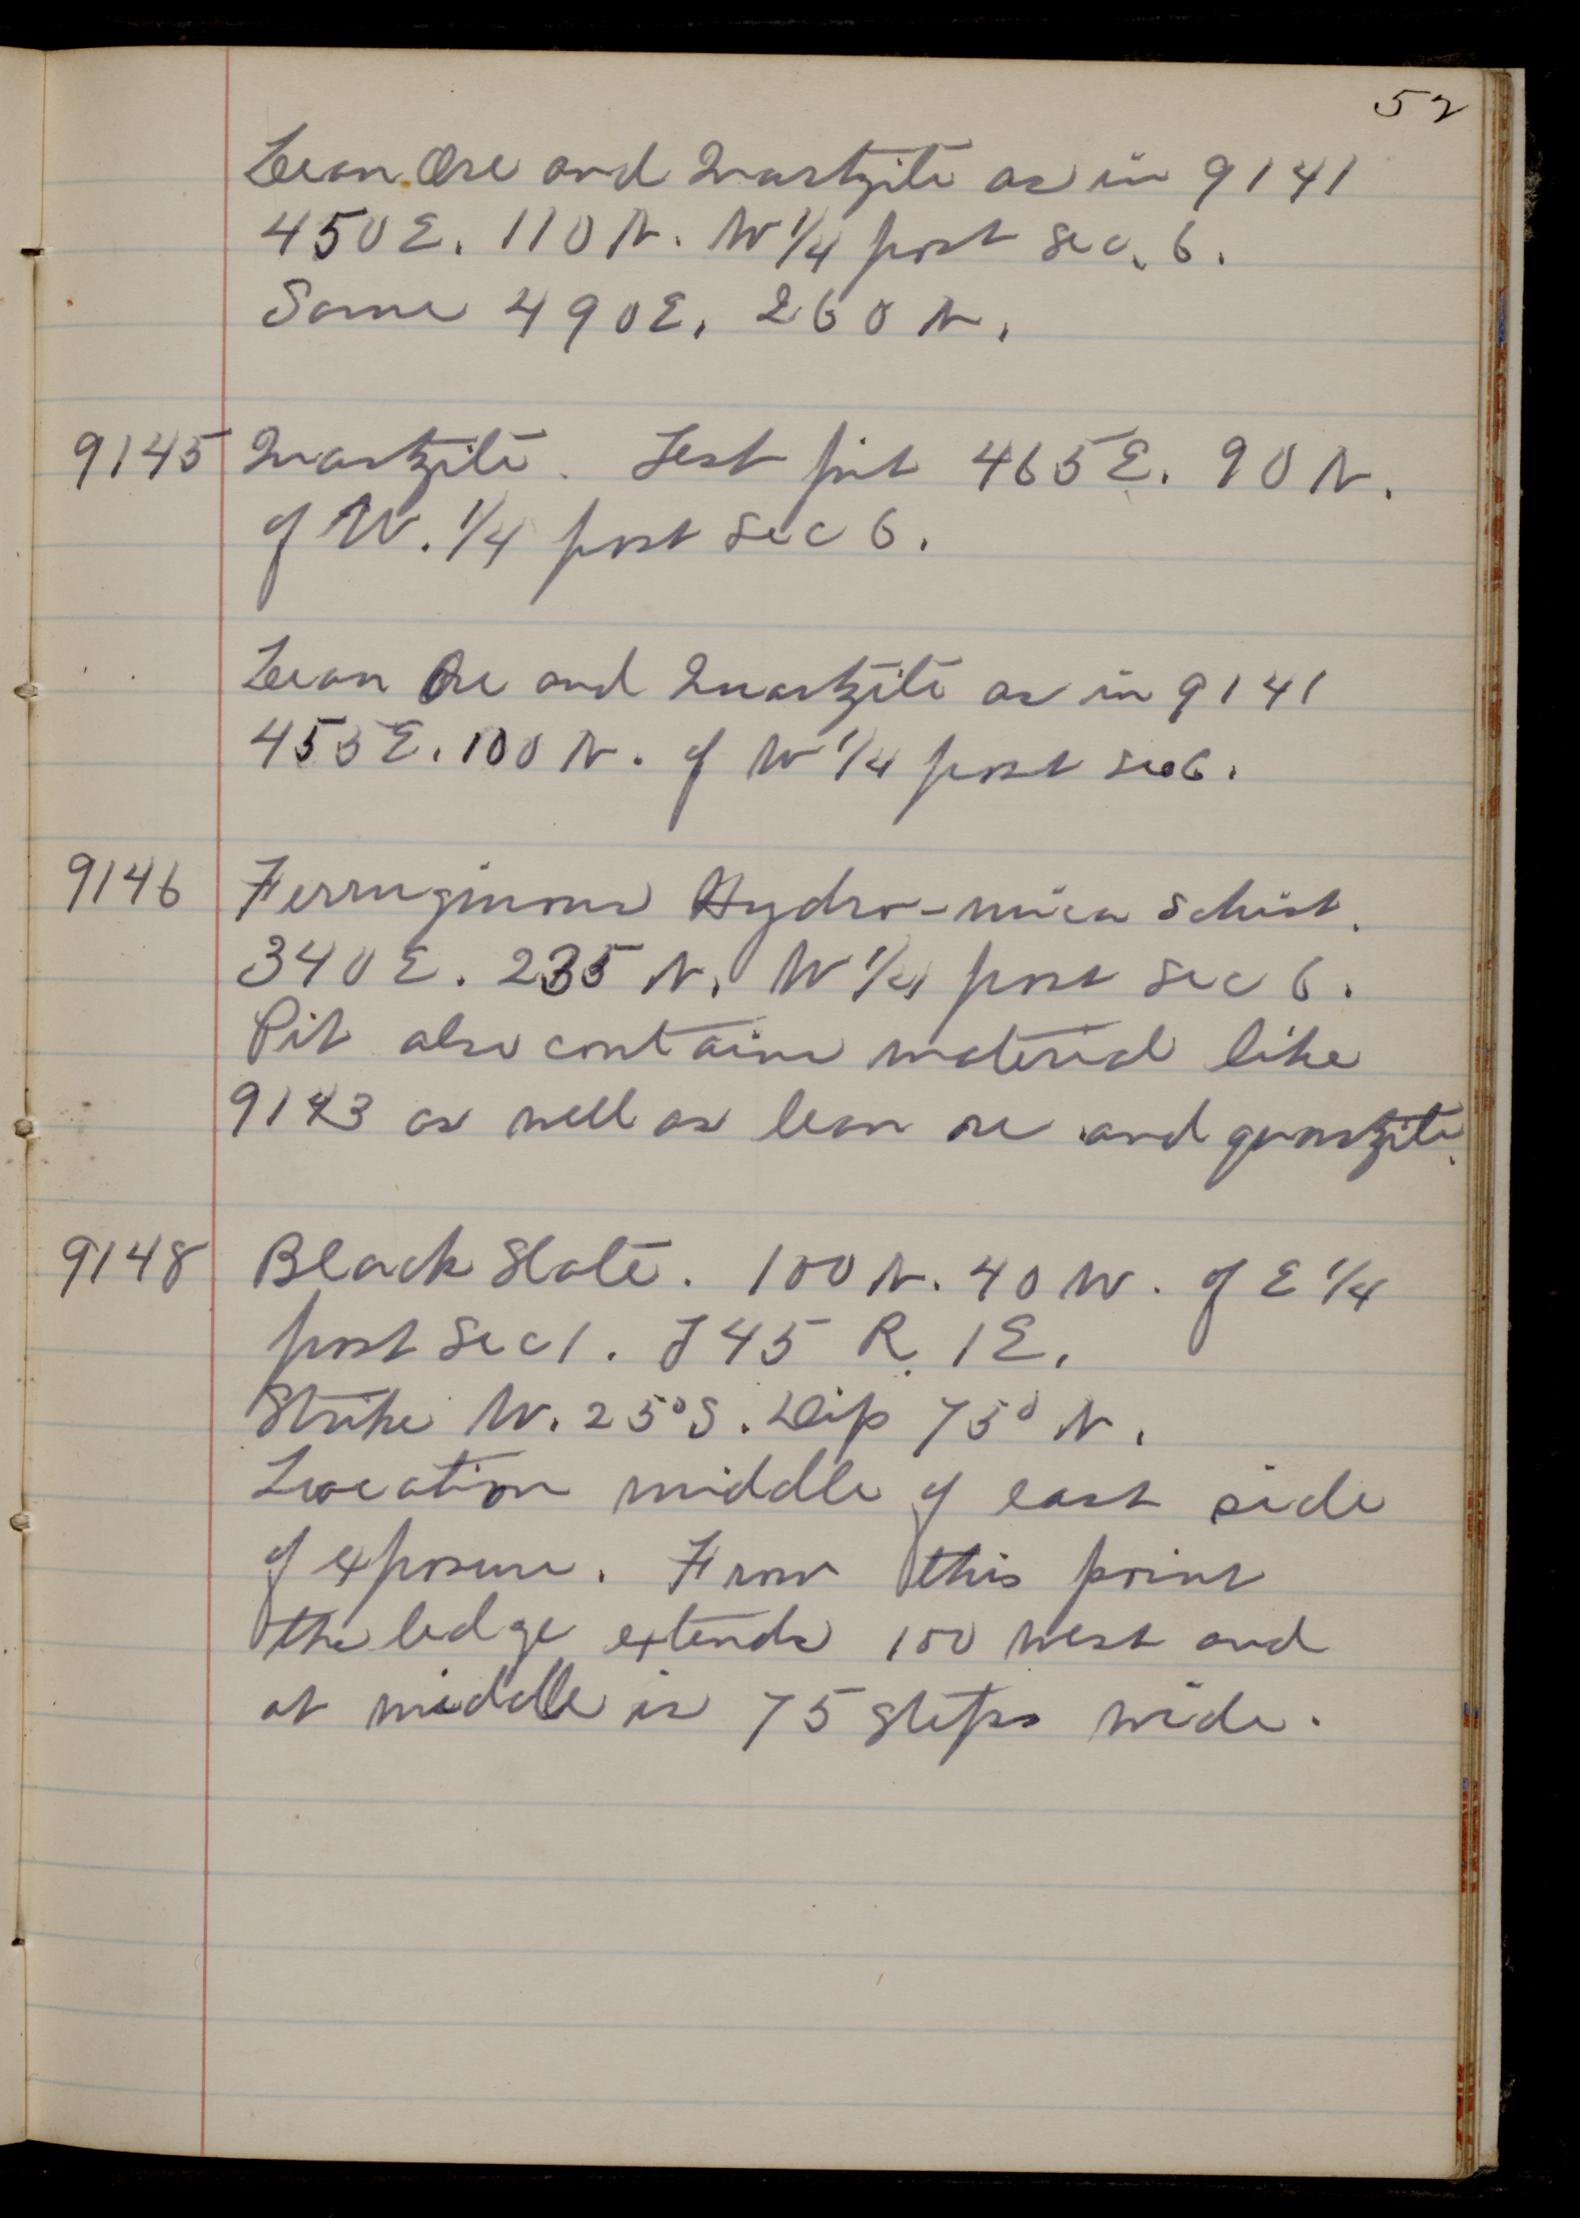 52
Lean Ore and Quartzite as in 9141
450 E. 110 N. W 1/4 post Sec. 6.
Same 490 E. 260 N.
9145 Quartzite. Test pit 465 E. 90 N.
of W. 1/4 post Sec 6.
Lean Ore and Quartzite as in 9141
455 E. 100 N. of W 1/4 post Sec 6.
9146 Ferruginous Hydro-mica Schist.
340 E. 235 N. W 1/4 post Sec 6.
Pit also contains material like
9143 as well as lean ore and quartzite.
9148 Black Slate. 100 N. 40 W. of E 1/4
post Sec 1. T 45 R. 1 E.
Strike W. 25° S. Dip 75° N.
Location middle of east side
of exposure. From this point
the ledge extends 100 west and
at middle is 75 steps wide.